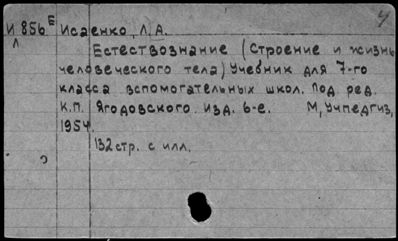 У
И 856 Е Исаенко, Л.А.
Л
Естествознание (Строение и жизнь
человеческого тела) Учебник для 7-го
класса вспомогательных школ. Под ред.
К.П. Ягодовского. изд. 6-е. М, Учпедгиз,
1954.
132 стр. с илл.